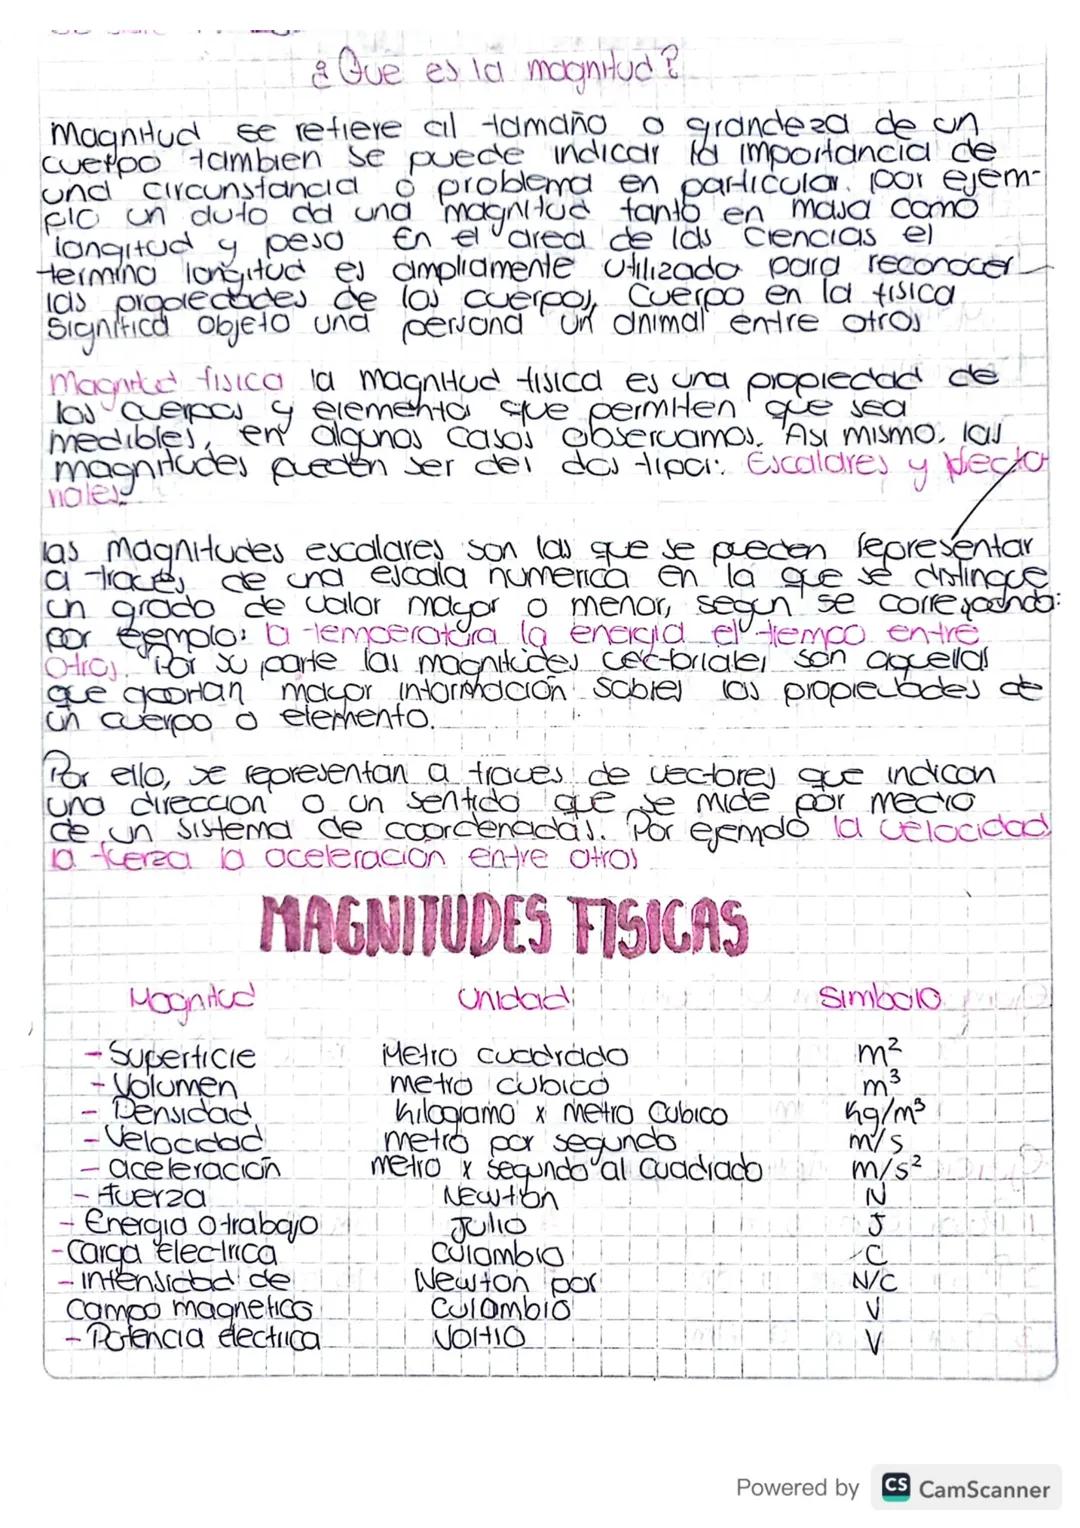 ¿Que es la magnitud?
Magnitud se refiere al tamaño o grandeza de un
cuerpo tambien se puede indicar la importancia de
una circunstancia o problema en particular. por ejem-
plo un auto da una magnitud tanto en masa como
longitud y peso En el area de las ciencias el
termino longitud es ampliamente utilizado para reconocer
las propiedades de los cuerpos, Cuerpo en la fisica
significa objeto una persona un animal entre otros
Magnitud fisica la magnitud fisica es una propiedad de
los cuerpos y elementos que permiten que sea
medibles, en algunos casos observamos. Asi mismo, las
magnitudes pueden ser de dos tipos: Escalares y Vecto
riales.
las magnitudes escalares son las que se pueden representar
a traves de una escala numerica en la que se distingue
un grado de valor mayor o menor, segun se corresponda:
por ejemplo: la temperatura la energia el tiempo entre
otros. Por su parte las magnitudes vectoriales son aquellas
que aportan mayor información sobre las propiedades de
un cuerpo o elemento.
Por ello, se representan a traves de vectores que indican
una direccion o un sentido que se mide por medio
de un sistema de coordenadas. Por ejemplo la velocidad
la fuerza la aceleracion entre otros
MAGNITUDES FISICAS
Magnitud Unidad Simbolo
- Superficie Metro cuadrado m²
- Volumen metro cubico m³
- Densidad Kilogramo x metro Cubico Kg/m³
- Velocidad metro por segundo m/s
- aceleración metro x segundo al cuadrado m/s²
- fuerza Newton N
- Energia o trabajo Julio J
- Carga electrica Culombio C
- intensidad de Newton por N/C
campo magnetico Culombio V
- Potencia electrica Voltio V
Powered by CS CamScanner